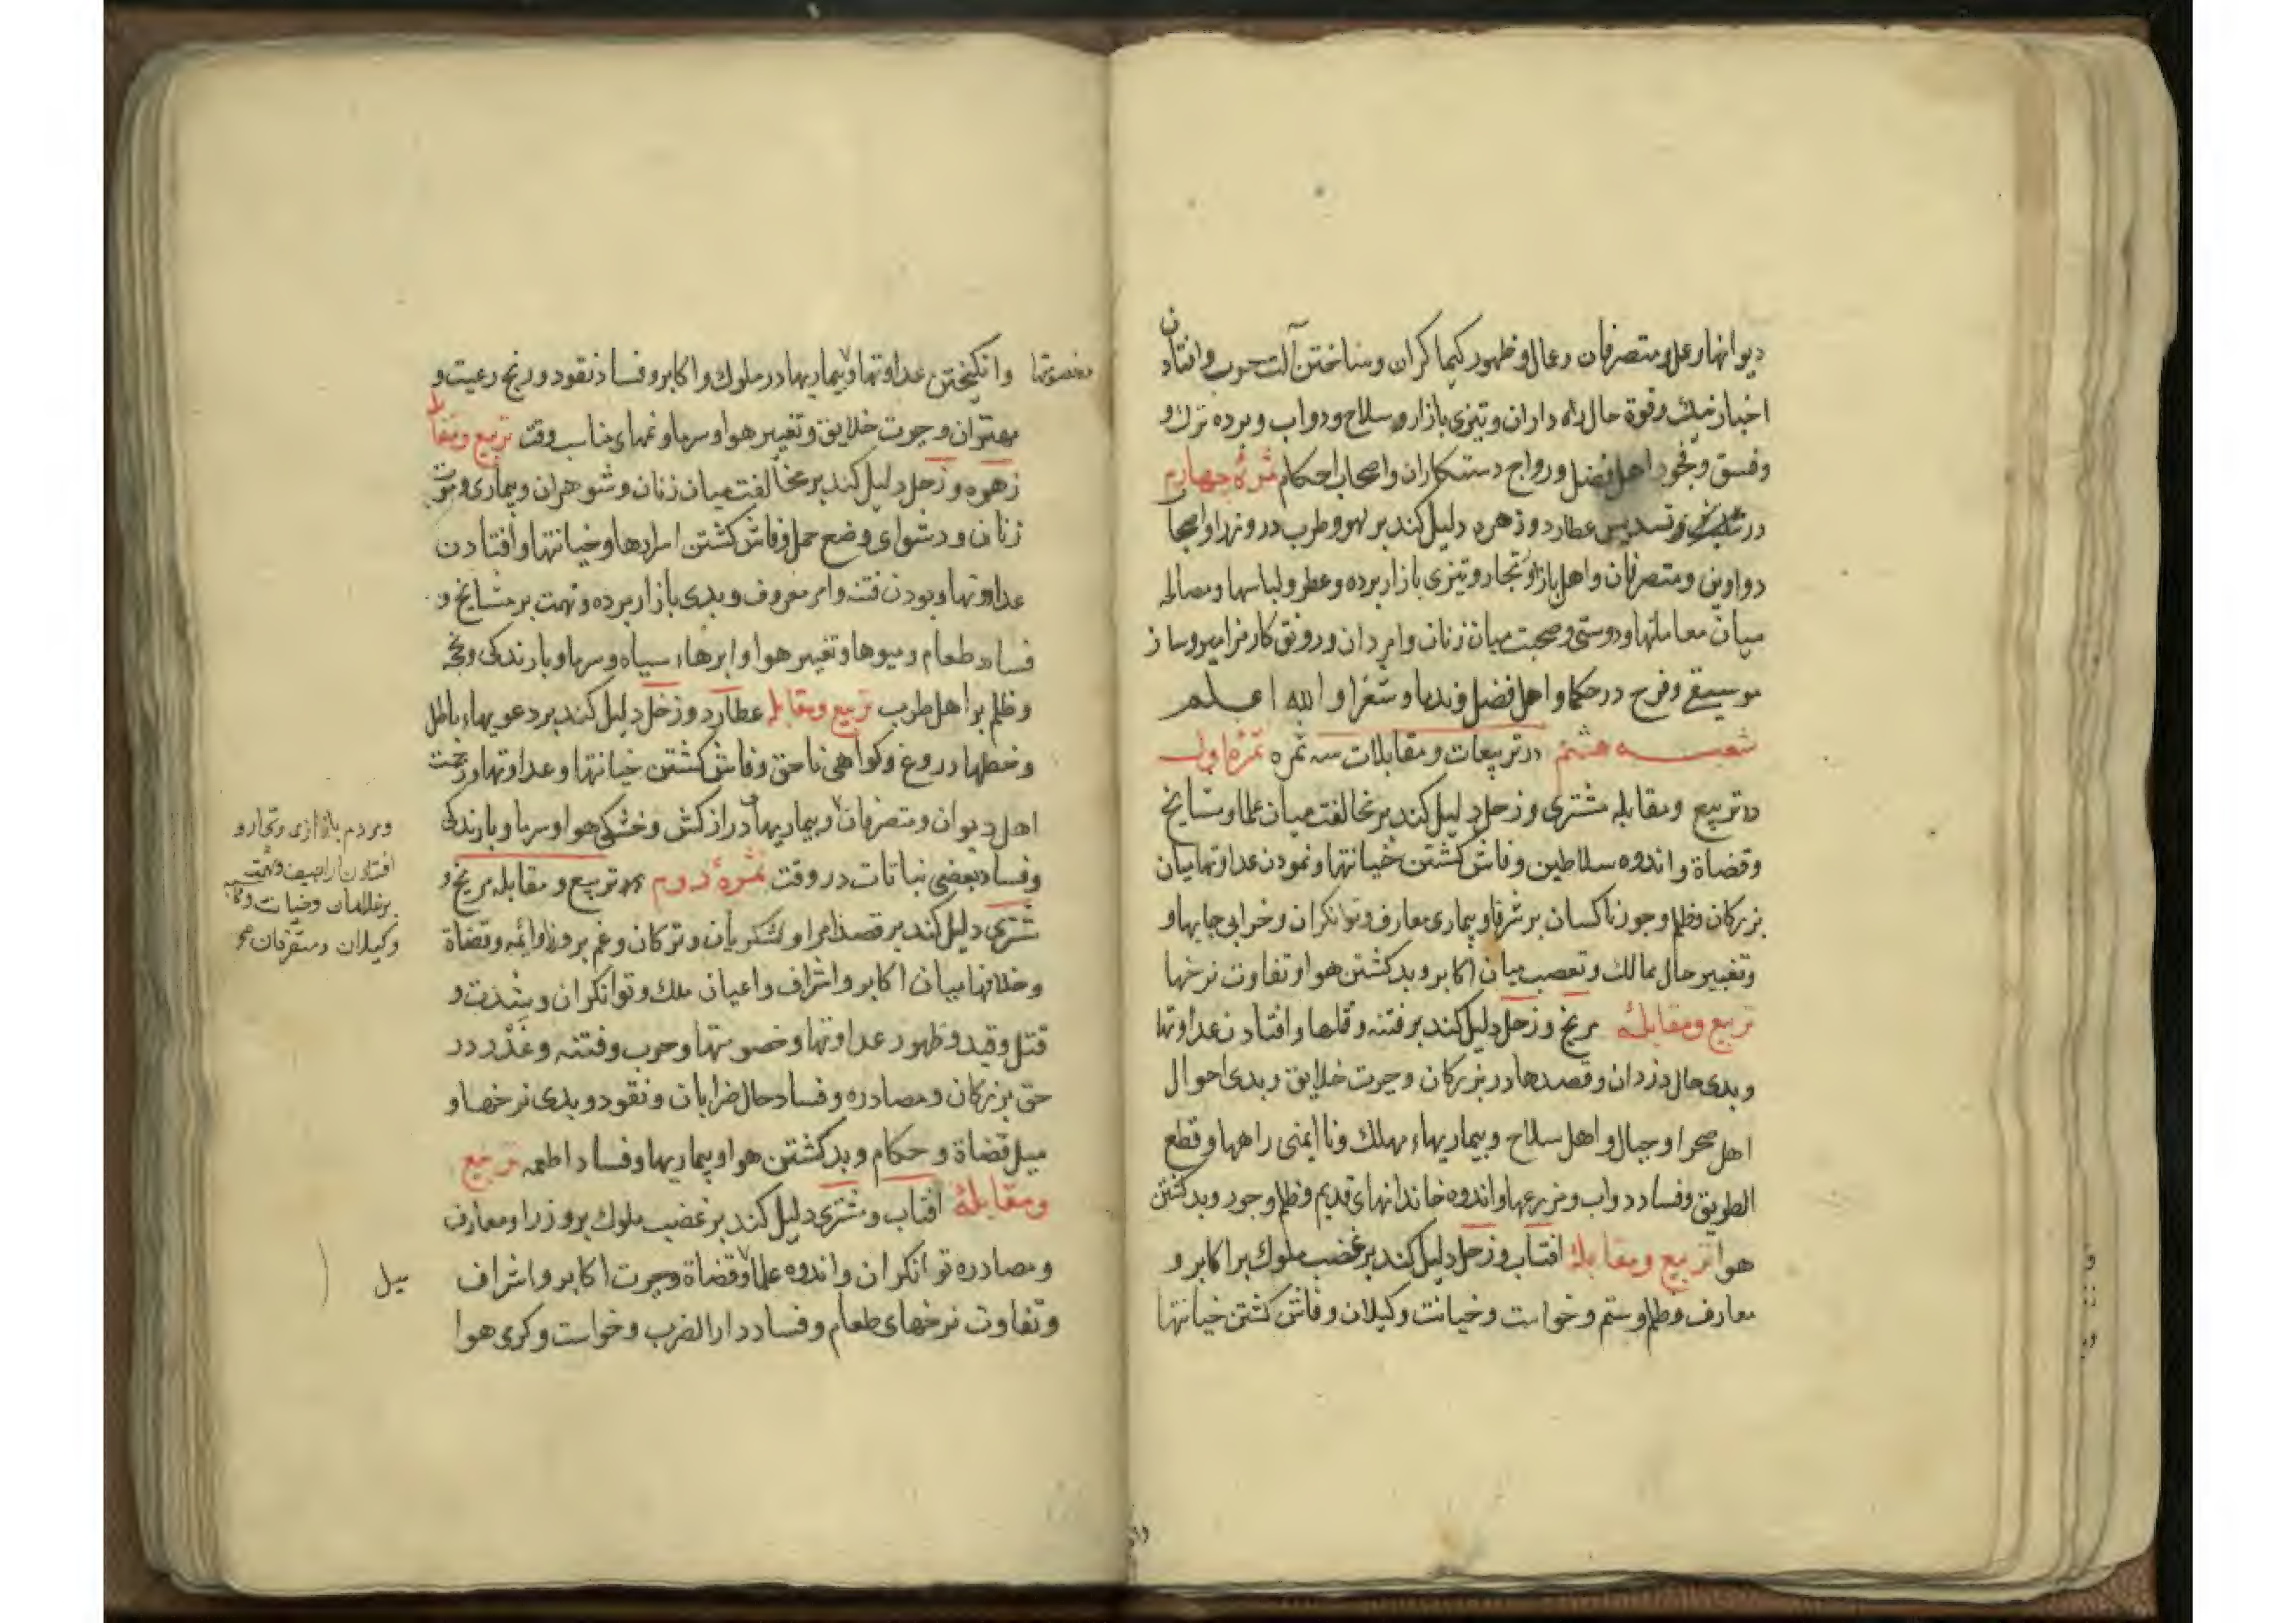 دیوانها و عمل و متصرفان و عمال و ظهور کیمیاکران و ساختن آلت حرب و افتادن
اخبار نیک و قوة حال راه داران و تیزی بازار و سلاح و دواب و برده ترک و
و فسق و فجور اهل فضل و رواج دستکاران و اصحاب احکام ثمرهٔ چهارم
در تثلیث و تسدیس عطارد و زهره دلیل کند بر لهو و طرب در وزرا و اصحاب
دواوین و متصرفان و اهل بازار و تجار و تیزی بازار برده و عطر و لباسها و مصالحه
میان معاملتها و دوستی و صحبت میان زنان و امردان و رونق کار مزامیر و ساز
موسیقی و فرح در حکما و اهل فضل و ندما و شعرا والله اعلم
شعبه هشتم در تربیعات و مقابلات سه ثمره ثمرهٔ اول
در تربیع و مقابله مشتری و زحل دلیل کند بر مخالفت میان علما و مشایخ
و قضاة و اندوه سلاطین و فاش کشتن خیانتها و نمودن عداوتها میان
بزرکان و ظلم و جور ناکسان بر شرفا و بیماری معارف و توانکران و خرابی جایها و
و تغییر حال ممالک و تعصب میان اکابر و بد کشتن هوا و تفاوت نرخها
تربیع و مقابلهٔ مریخ و زحل دلیل کند بر فتنه و قتلها و افتادن عداوتها
و بدی حال دزدان و قصدها در بزرکان و حیرت خلایق و بدی احوال
اهل صحرا و جبال و اهل سلاح و بیماریهاء مهلک و ناایمنی راهها و قطع
الطریق و فساد دواب و مزرعها و اندوه خاندانهای قدیم و ظلم و جور و بد کشتن
هوا تربیع و مقابلهٔ افتاب و زحل دلیل کند بر غضب ملوک بر اکابر و
معارف و ظلم و ستم و خواست و خیانت وکیلان و فاش کشتن خیانتها
و خصومتها و انکیختن عداوتها و بیماریها در ملوک و اکابر و فساد نقود و رنج رعیت و
مهتران و حیرت خلایق و تغییر هوا و سرما و نمهای مناسب وقت تربیع و مقابله
زهره و زحل دلیل کند بر مخالفت میان زنان و شوهران و بیماری و موت
زنان و دشواری وضع حمل و فاش کشتن اسرارها و خیانتها و افتادن
عداوتها و بودن فتنه و امر معروف و بدی بازار برده و تهمت بر مشایخ و
فساد طعام و میوها و تغییر هوا و ابرهاء سیاه و سرما و بارندکی و
و ظلم بر اهل طرب تربیع و مقابله عطارد و زحل دلیل کند بر دعویهاء باطل
و خطهاء دروغ و کواهی ناحق و فاش کشتن خیانتها و عداوتها و زحمت
اهل دیوان و متصرفان و بیماریهای دراز کش و خشکی هوا و سرما و بارندکی
و فساد بعضی نباتات در وقت ثمرهٔ دوم در تربیع و مقابله مریخ و
مشتری دلیل کند بر قصد امرا و لشکریان و ترکان و غم بر وزرا و ائمه و قضاة
و خلافها میان اکابر و اشراف و اعیان ملک و توانکران و شدت و
قتل و قید و ظهور عداوتها و خصومتها و حرب و فتنه و غدر در
حق بزرکان و مصادره و فساد حال ضرابان و نقود و بدی نرخها و
میل قضاة و حکام و بد کشتن هوا و بیماریها و فساد اطعمه تربیع
و مقابلهٔ افتاب و مشتری دلیل کند بر غضب ملوک بر وزرا و معارف
و مصادره توانکران و اندوه علما و قضاة و حیرت اکابر و اشراف
و تفاوت نرخهای طعام و فساد دار الضرب و خواست و کرمی هوا
و مردم بازاری و تجار و
افتادن اراجیف و تهمت
بر غلامان و خیانت
وکیلان و متصرفان
میل